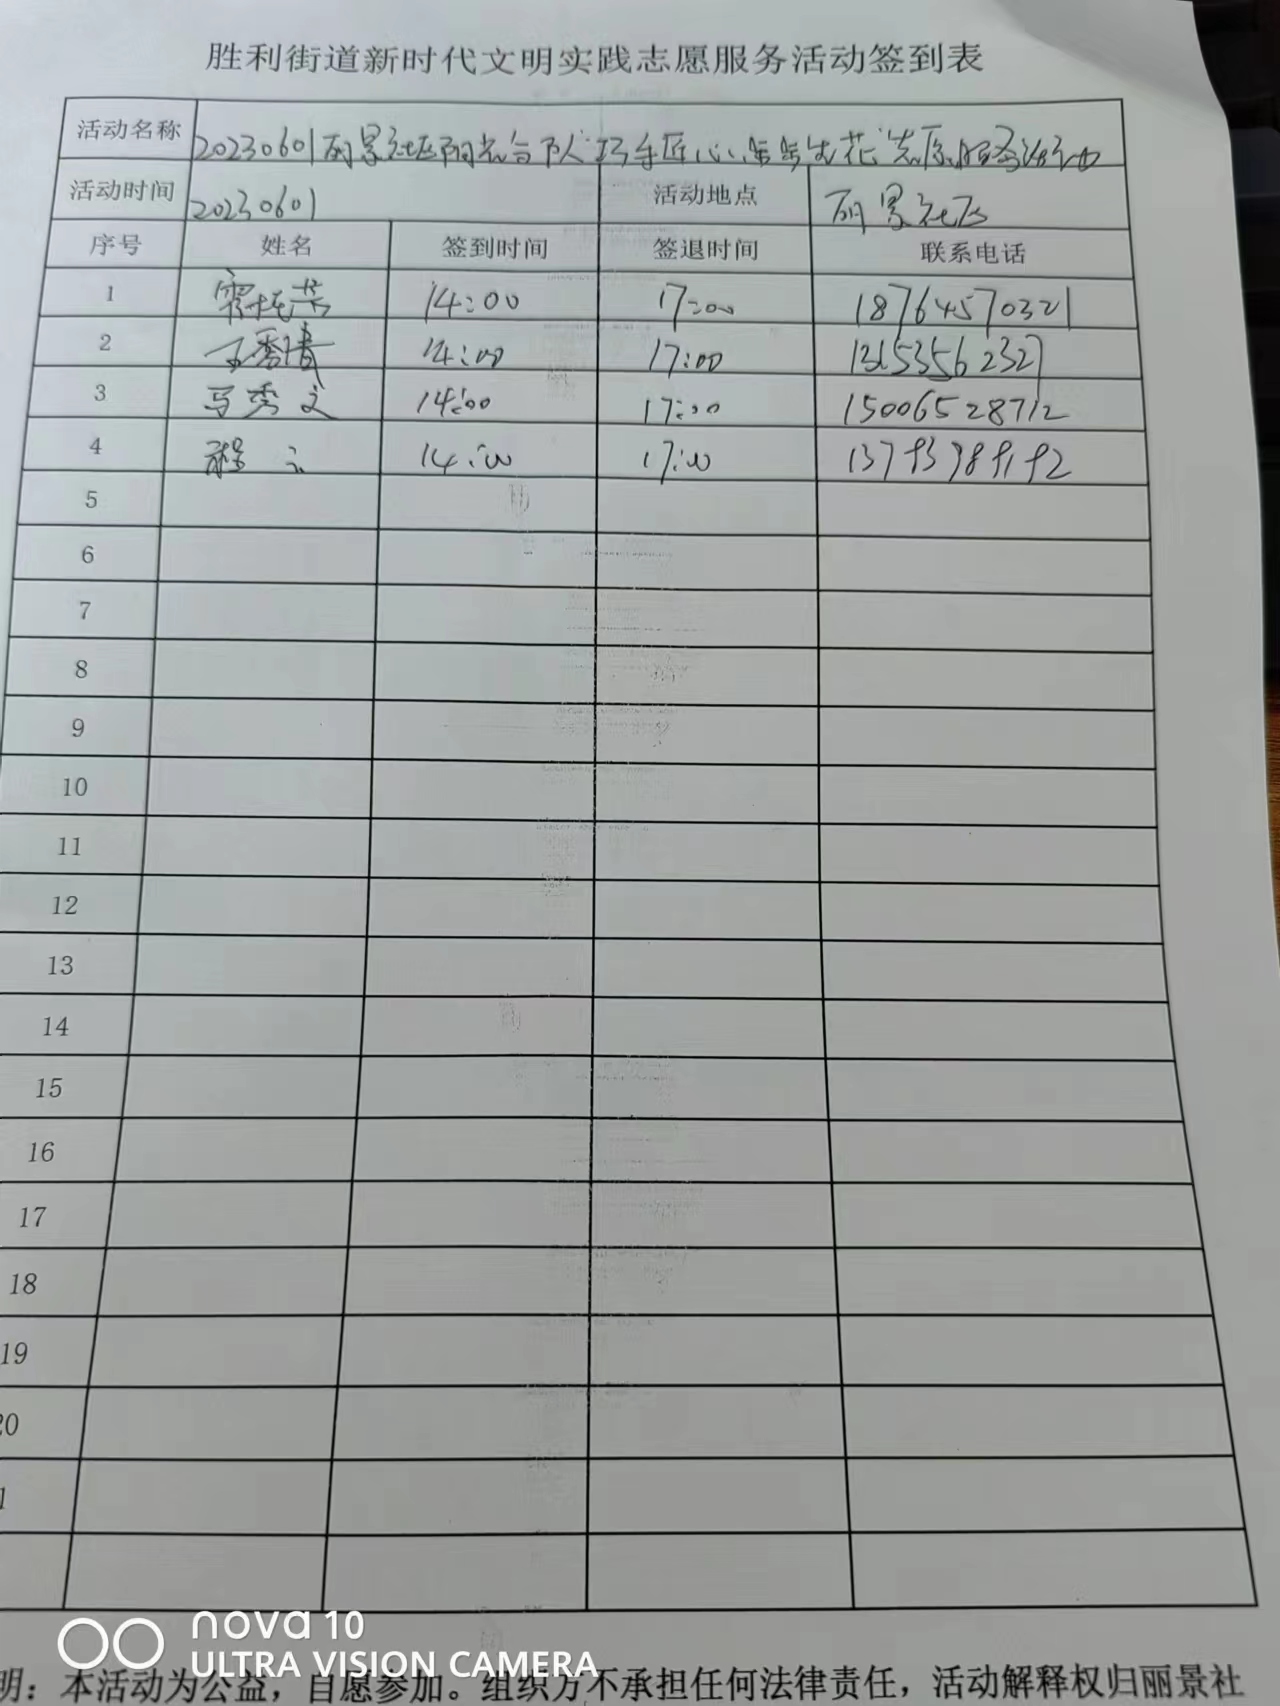 胜利街道新时代文明实践志愿服务活动签到表
活动名称 20230601丽景社区阳光分队巧手匠心 生花志愿服务活动
活动时间 20230601 活动地点 丽景社区
序号 姓名 签到时间 签退时间 联系电话
1 14:00 17:00 18764570321
2 14:00 17:00 13153562327
3 马秀文 14:00 17:00 15006528712
4 程 14:00 17:00
5
6
7
8
9
10
11
12
13
14
15
16
17
18
19
20
1
明：本活动为公益，自愿参加。组织方不承担任何法律责任，活动解释权归丽景社
nova 10
ULTRA VISION CAMERA